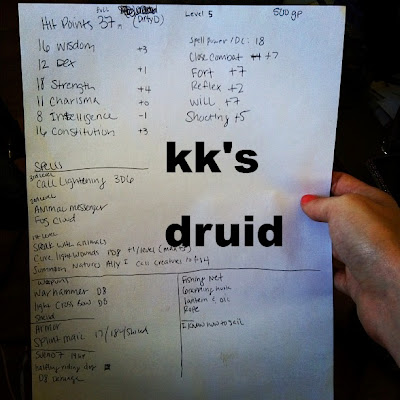 full
Hit Points 37
(Dirty D)
Level 5
500 gp
16 Wisdom +3
12 Dex +1
18 Strength +4
11 Charisma +0
8 Intelligence -1
16 Constitution +3
Spell Power / DC: 18
Close Combat +7
Fort +7
Reflex +2
Will +7
Shooting +5
kk's
druid
Spells
3rd Level
Call Lightening 3D6
2nd Level
Animal messenger
Fog Cloud
1st Level
Speak with animals
Cure light wounds 1D8 +1/level (max+5)
Summon Natures Ally I
Weapons
Warhammer D8
light cross bow D8
Shield
Armor
Splint mail 17/18 w/ shield
halfling riding dog
Fishing net
Grappling hook
lantern & oil
Rope
I know how to sail